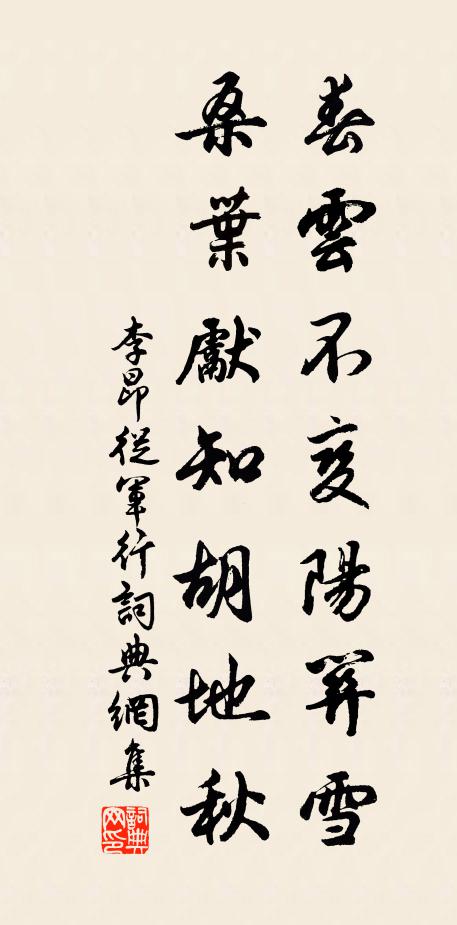 春雲不變陽關雪
桑葉獻知胡地秋
李昂從軍行詞典網集
詞典網印